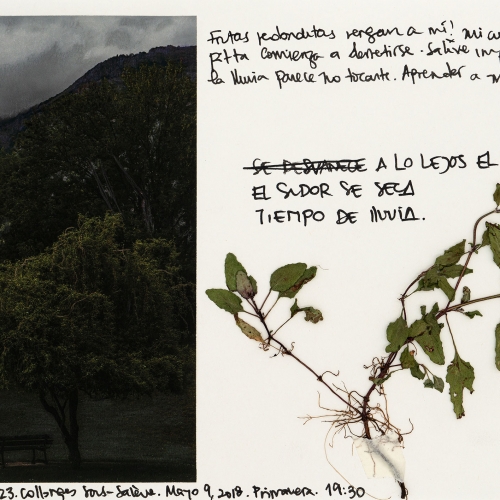 Frutas redonditas vengan a mí! Mi cu
comienza a derretirse. Salève imp
la lluvia parece no tocarte. Aprender a
SE DESVANECE A LO LEJOS EL
EL SUDOR SE SECA
TIEMPO DE lluvia.
23. Collonges Sous-Salève. Mayo 9, 2018. Primavera. 19:30